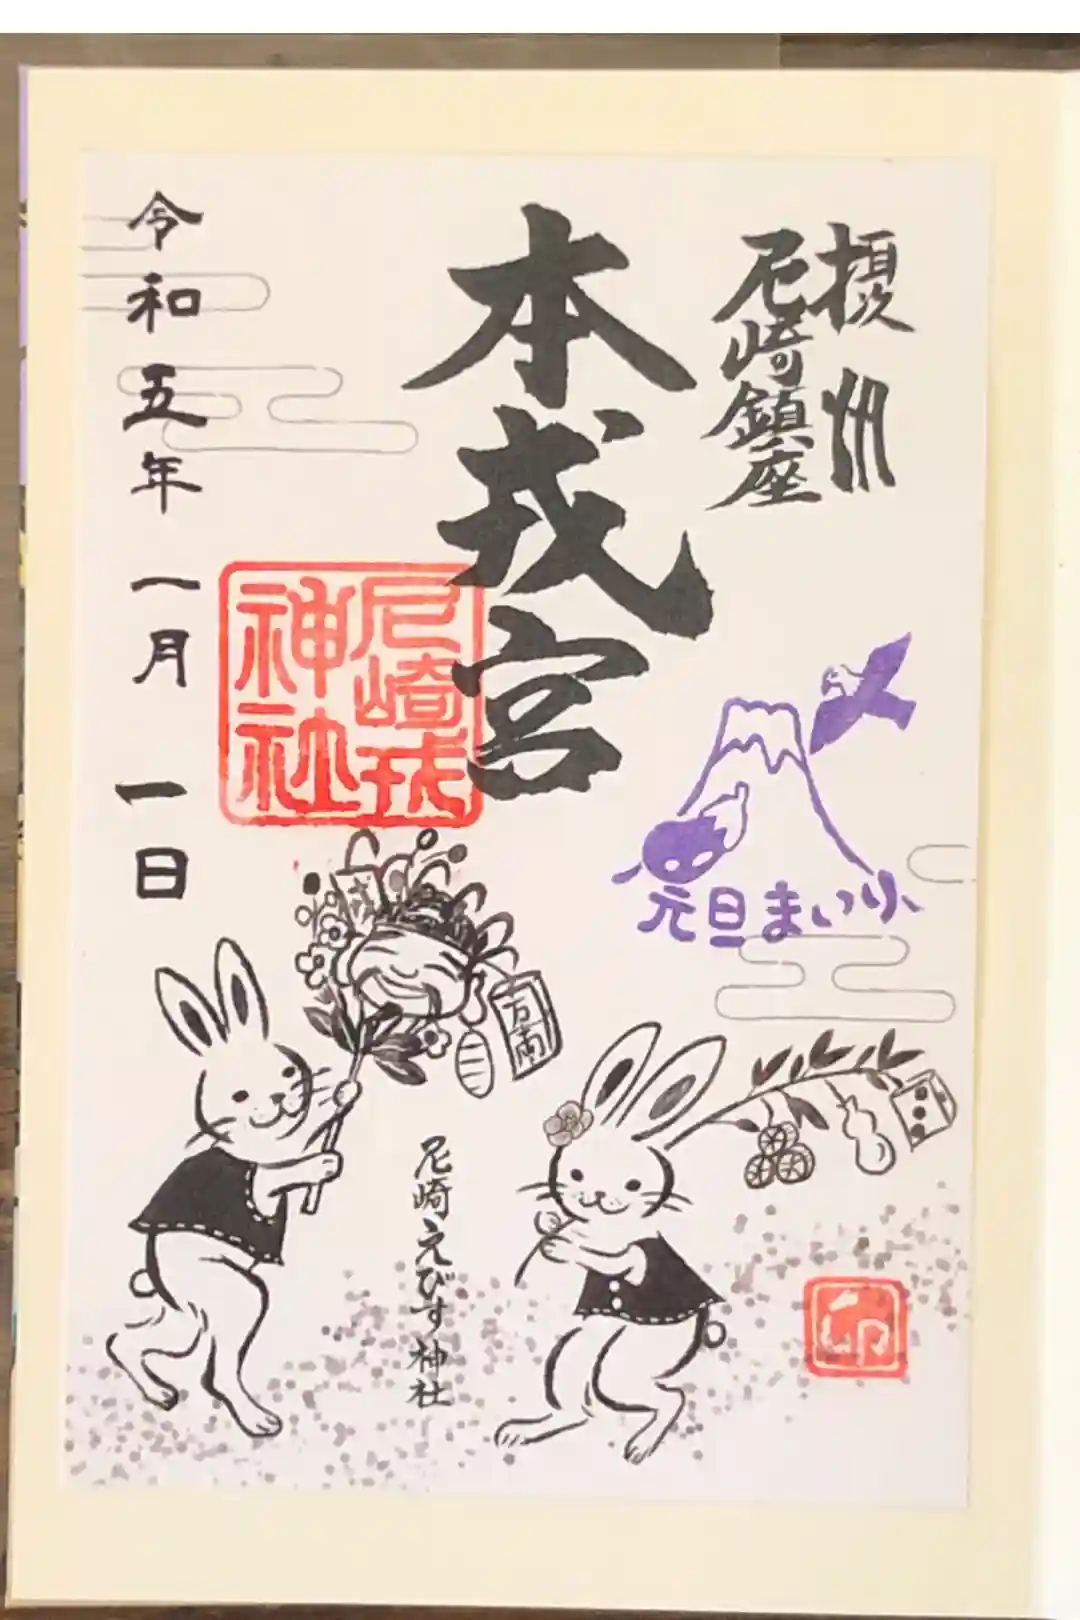 摂州
尼崎鎮座
本戎宮
令和五年 一月 一日
尼崎戎
神社
元旦まいり
尼崎えびす神社
卯